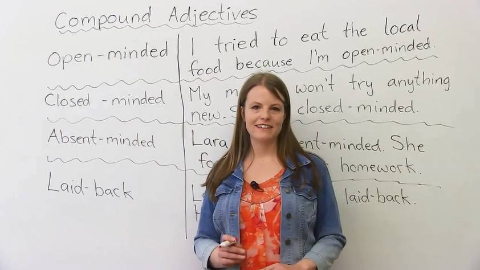 Compound Adjectives
Open-minded
I tried to eat the local
food because I'm open-minded.
Closed-minded
My won't try anything
new. closed-minded.
Absent-minded
Lara She
homework.
Laid-back
laid-back.